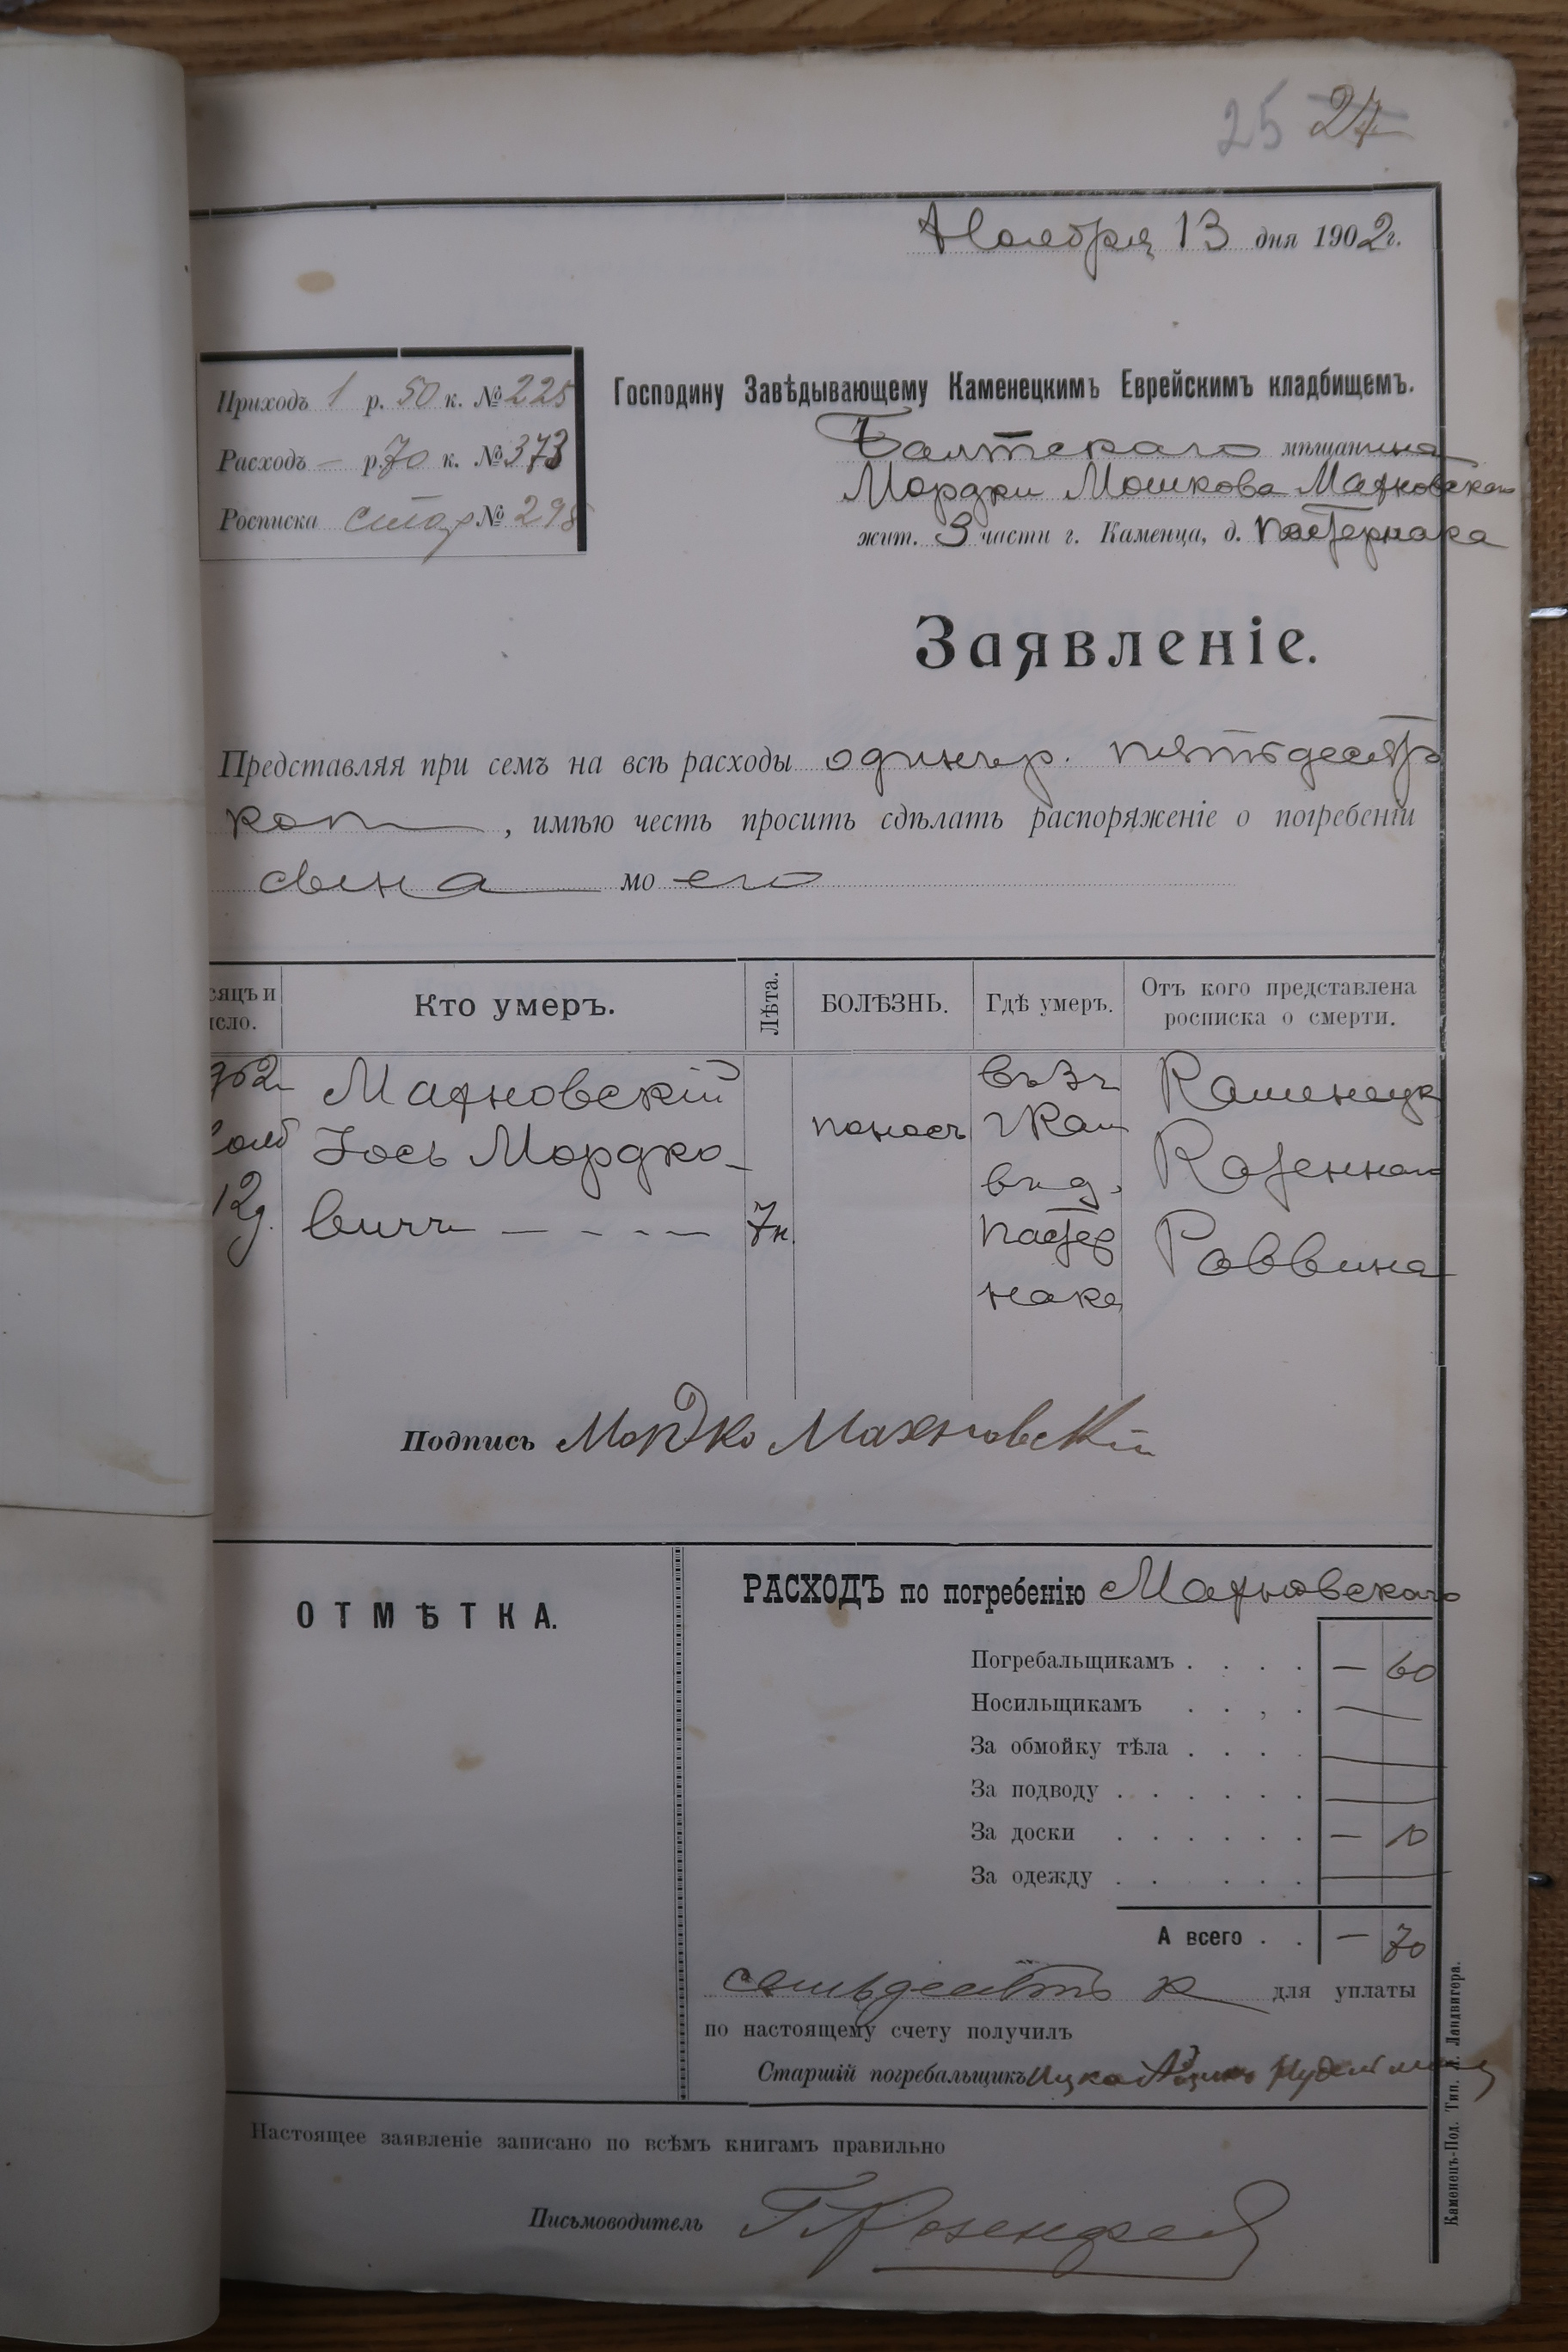 25 24
Ноября 13 дня 1902 г.
Приходъ 1 р. 50 к. № 225
Расходъ — р. 70 к. № 373
Росписка стар № 298
Господину Завѣдывающему Каменецкимъ Еврейскимъ кладбищемъ.
Балтскаго мѣщанина
Мордки Мошкова Махновскаго
жит. 3 части г. Каменца, д. Пастернака
Заявленіе.
Представляя при семъ на всѣ расходы одинъ р. пятьдесят
коп , имѣю честь просить сдѣлать распоряженіе о погребеніи
сына моего
сяцъ и
исло.
Кто умеръ.
Лѣта.
БОЛѢЗНЬ.
Гдѣ умеръ.
Отъ кого представлена
росписка о смерти.
12д.
Махновскій
Іось Мордко-
вичъ — - - - —
7н.
поносъ
въ 3 ч
г Кам
въ д.
Пастер
нака
Каменецк
Казеннаго
Раввина
Подпись Мордко Махновскій
ОТМѢТКА.
РАСХОДЪ по погребенію Махновскаго
Погребальщикамъ . . . . — 60
Носильщикамъ . . , . —
За обмойку тѣла . . . . —
За подводу . . . . . . —
За доски . . . . . . — 10
За одежду . . . . . . —
А всего . . — 70
семьдесятъ к для уплаты
по настоящему счету получилъ
Старшій погребальщикъ Ицко
Настоящее заявленіе записано по всѣмъ книгамъ правильно
Письмоводитель Г Розенфельд
Каменецъ-Под. Тип. Л. Ландвигера.